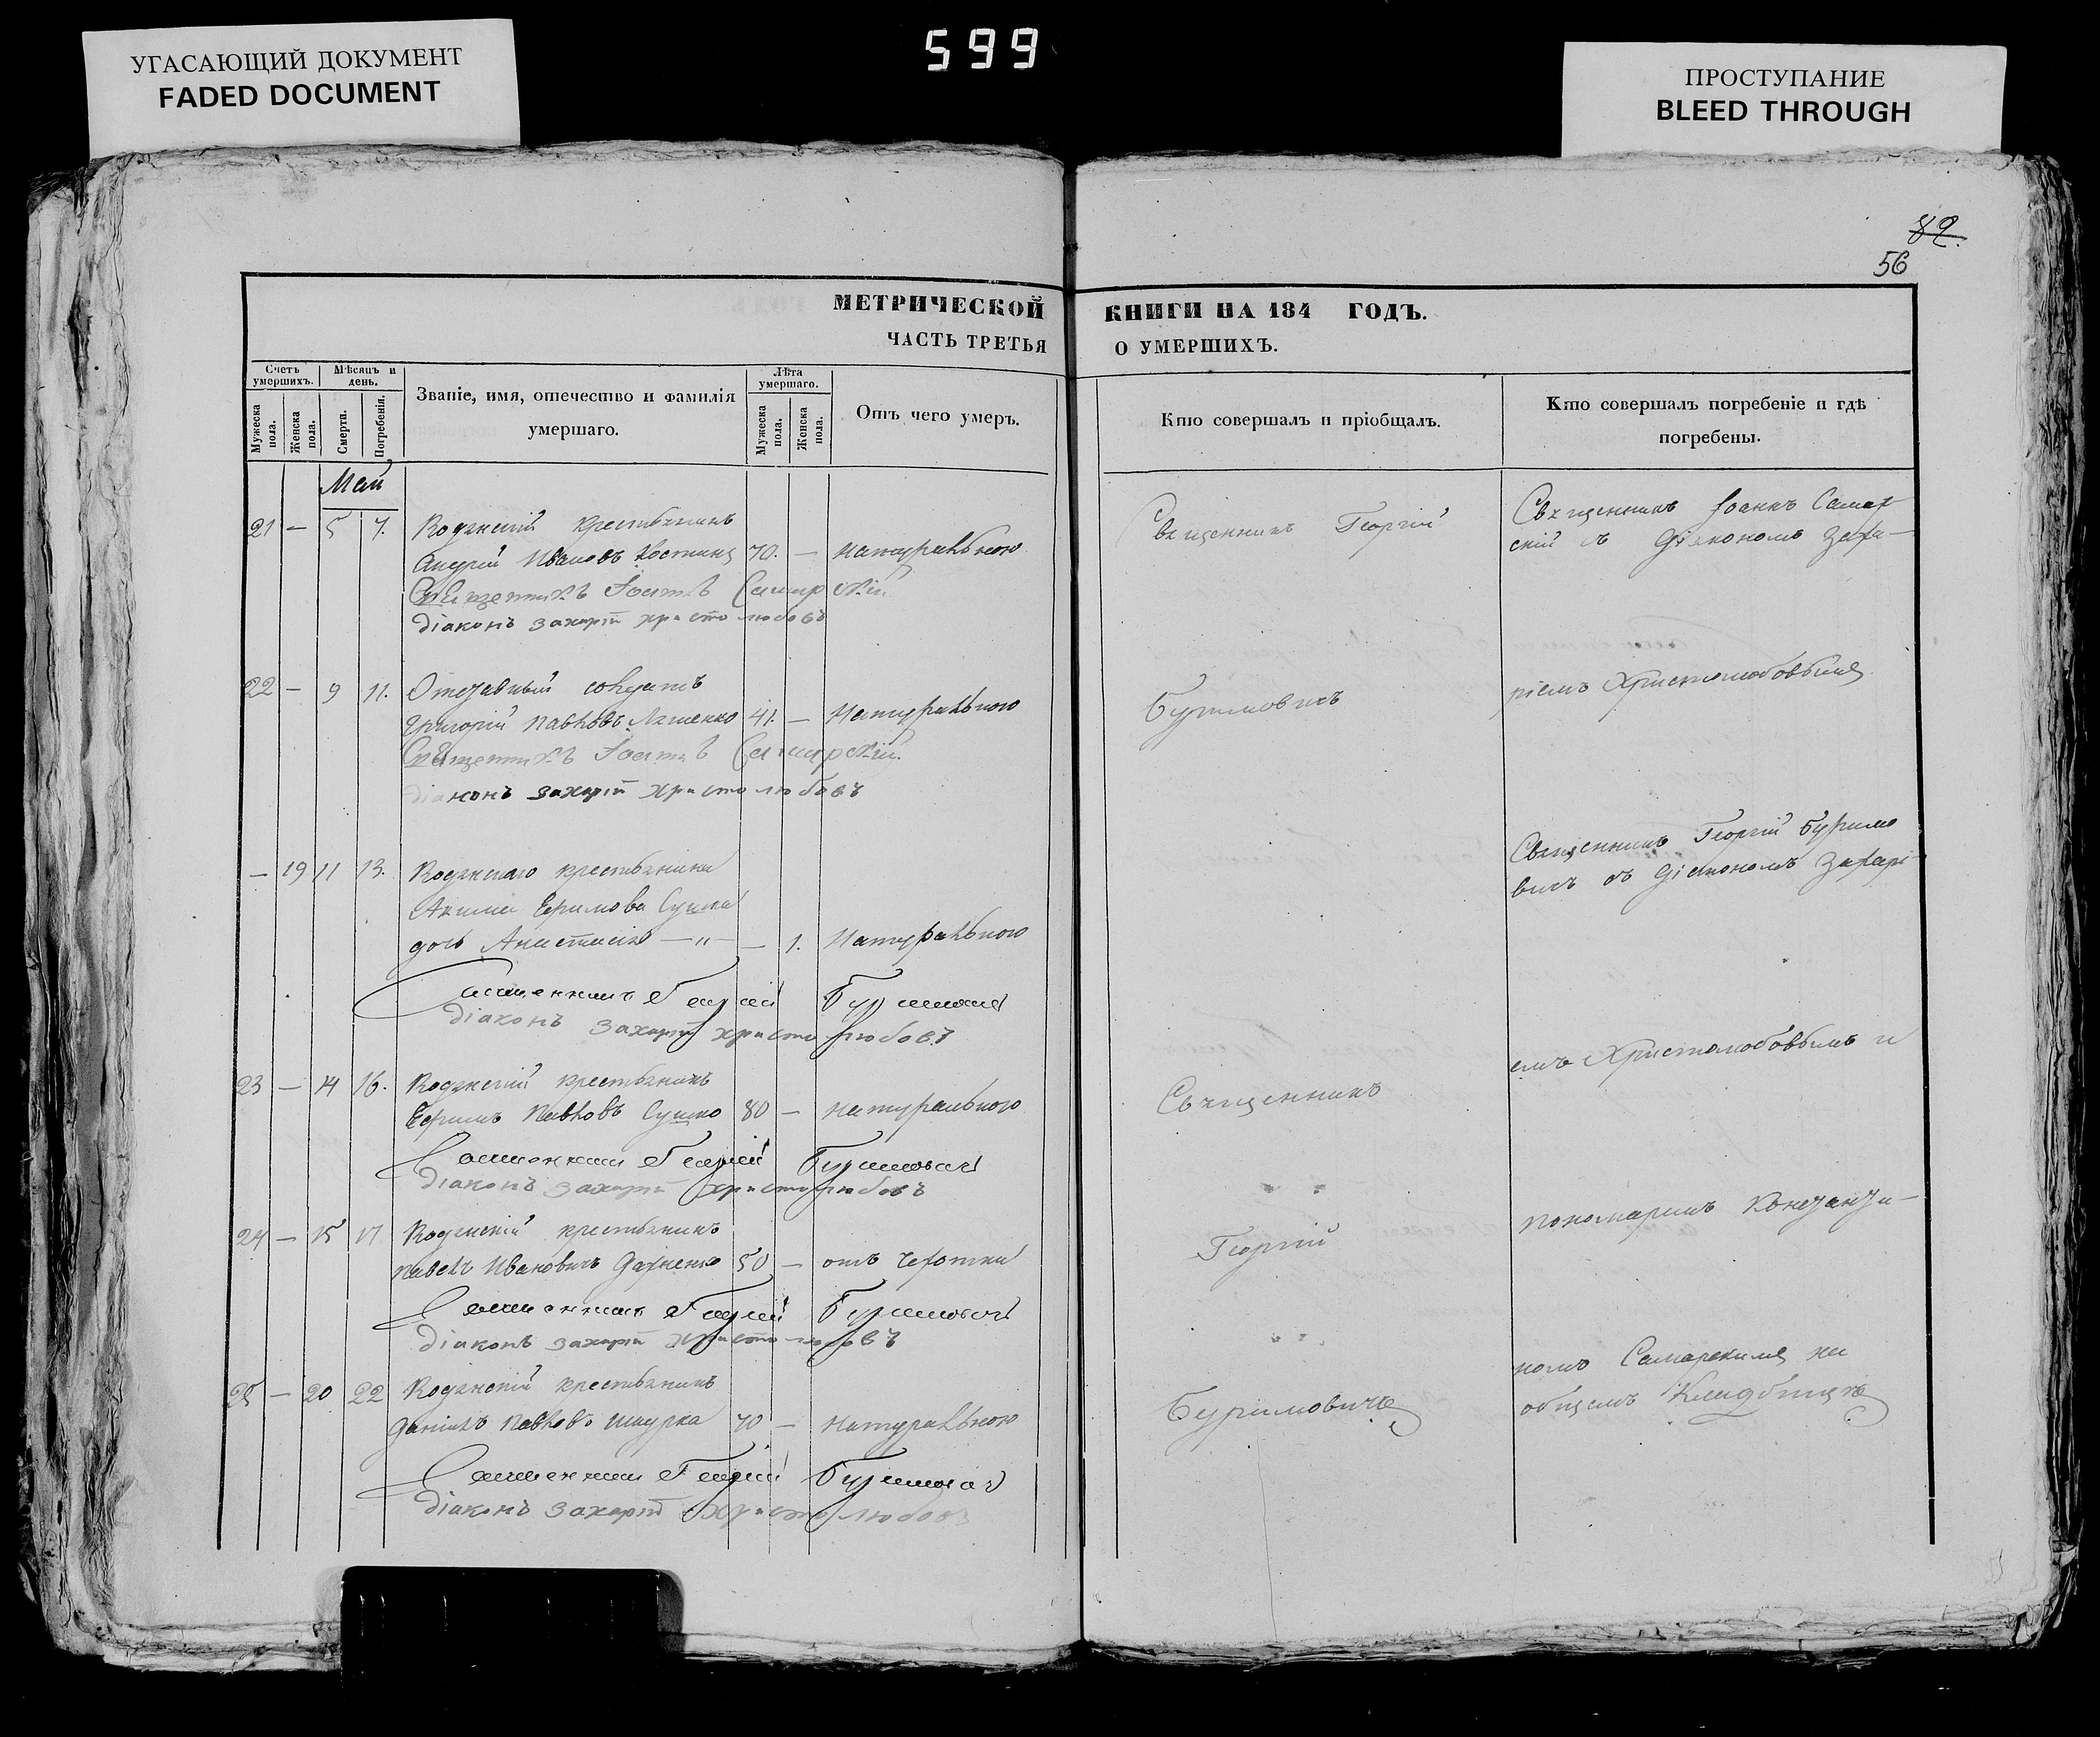 УГАСАЮЩИЙ ДОКУМЕНТ
FADED DOCUMENT
599
ПРОСТУПАНИЕ
BLEED THROUGH
82.
56
МЕТРИЧЕСКОЙ КНИГИ НА 184 ГОДЪ.
ЧАСТЬ ТРЕТЬЯ О УМЕРШИХЪ.
Счетъ умершихъ.
Мужеска пола.
Женска пола.
Мѣсяцъ и день.
Смерти.
Погребенія.
Званіе, имя, отечество и фамилія умершаго.
Лѣта умершаго.
Мужеска пола.
Женска пола.
Отъ чего умеръ.
Кто совершалъ и пріобщалъ.
Кто совершалъ погребеніе и гдѣ погребены.
Май
21 — 5 7. крестьянинъ
Андрей Ивановъ 70. — Натуральною
Священникъ Іоаннъ Самарскій
Діаконъ Захарій Христолюбовъ
22 — 9 11. Отставный солдатъ
Григорій Павловъ Ляшенко 41. — Натуральною
Священникъ Іоаннъ Самарскій.
Діаконъ Захарій Христолюбовъ
— 19 11 13. крестьянина
Акима Ефимова Сушка
дочь Анастасія —„— — 1. Натуральною
Священникъ Георгій Буримовичъ
Діаконъ Захарій Христолюбовъ
23 — 14 16. крестьянинъ
Ефимъ Павловъ Сушко 80 — натуральною
Священникъ Георгій Буримовичъ
Діаконъ Захарій Христолюбовъ
24 — 15 17 крестьянинъ
Павелъ Ивановичъ 50 — отъ чахотки
Священникъ Георгій Буримовичъ
Діаконъ Захарій Христолюбовъ
25 — 20 22 крестьянинъ
Даніилъ Павловъ Шкурка 70 — натуральною
Священникъ Георгій Буримовичъ
Діаконъ Захарій Христолюбовъ
Священникъ Георгій
Буримовичъ
Священникъ
Георгій
Буримовичъ
Священникъ Іоаннъ Самар
скій съ Діякономъ Заха—
ріемъ Христолюбовымъ
Священникъ Георгій Буримо
вичъ съ Діякономъ Захарі
емъ Христолюбовымъ и
пономаремъ
номъ Самарскимъ на
общемъ Кладбищѣ